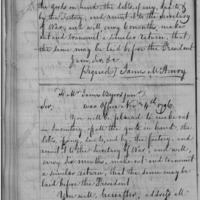 the goods on hand, the debts if any, due to &
by the Factory, and remit it to the Secretary
of War, and will every 6 months make
out & transmit a similar return, that
the same may be laid before the President
I am, Sir &c
Signed/ James McHenry
Mr. James Byers
Sir, War Office Nov 1796
You will be pleased to make out
an Inventory of all the goods on hand, the
debts, if any, due to, and by the factory, and re
mit it to the Secretary of War and will,
every six months, make out and transmit
a similar return, that the same may be
laid before the President.
You will, hereafter,